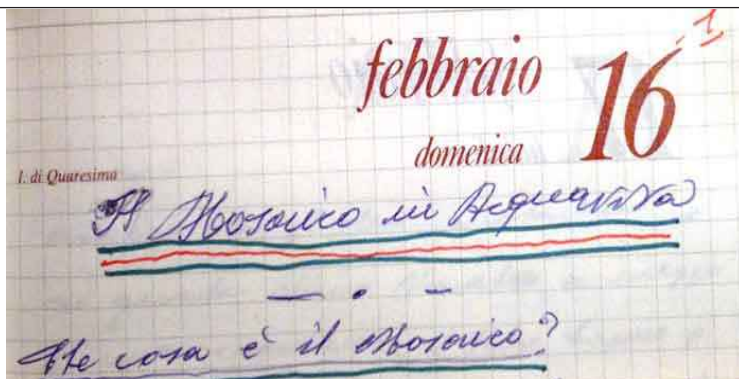 febbraio 16
domenica
I. di Quaresima
Il Mosaico in Acquaviva
Che cosa è il Mosaico?